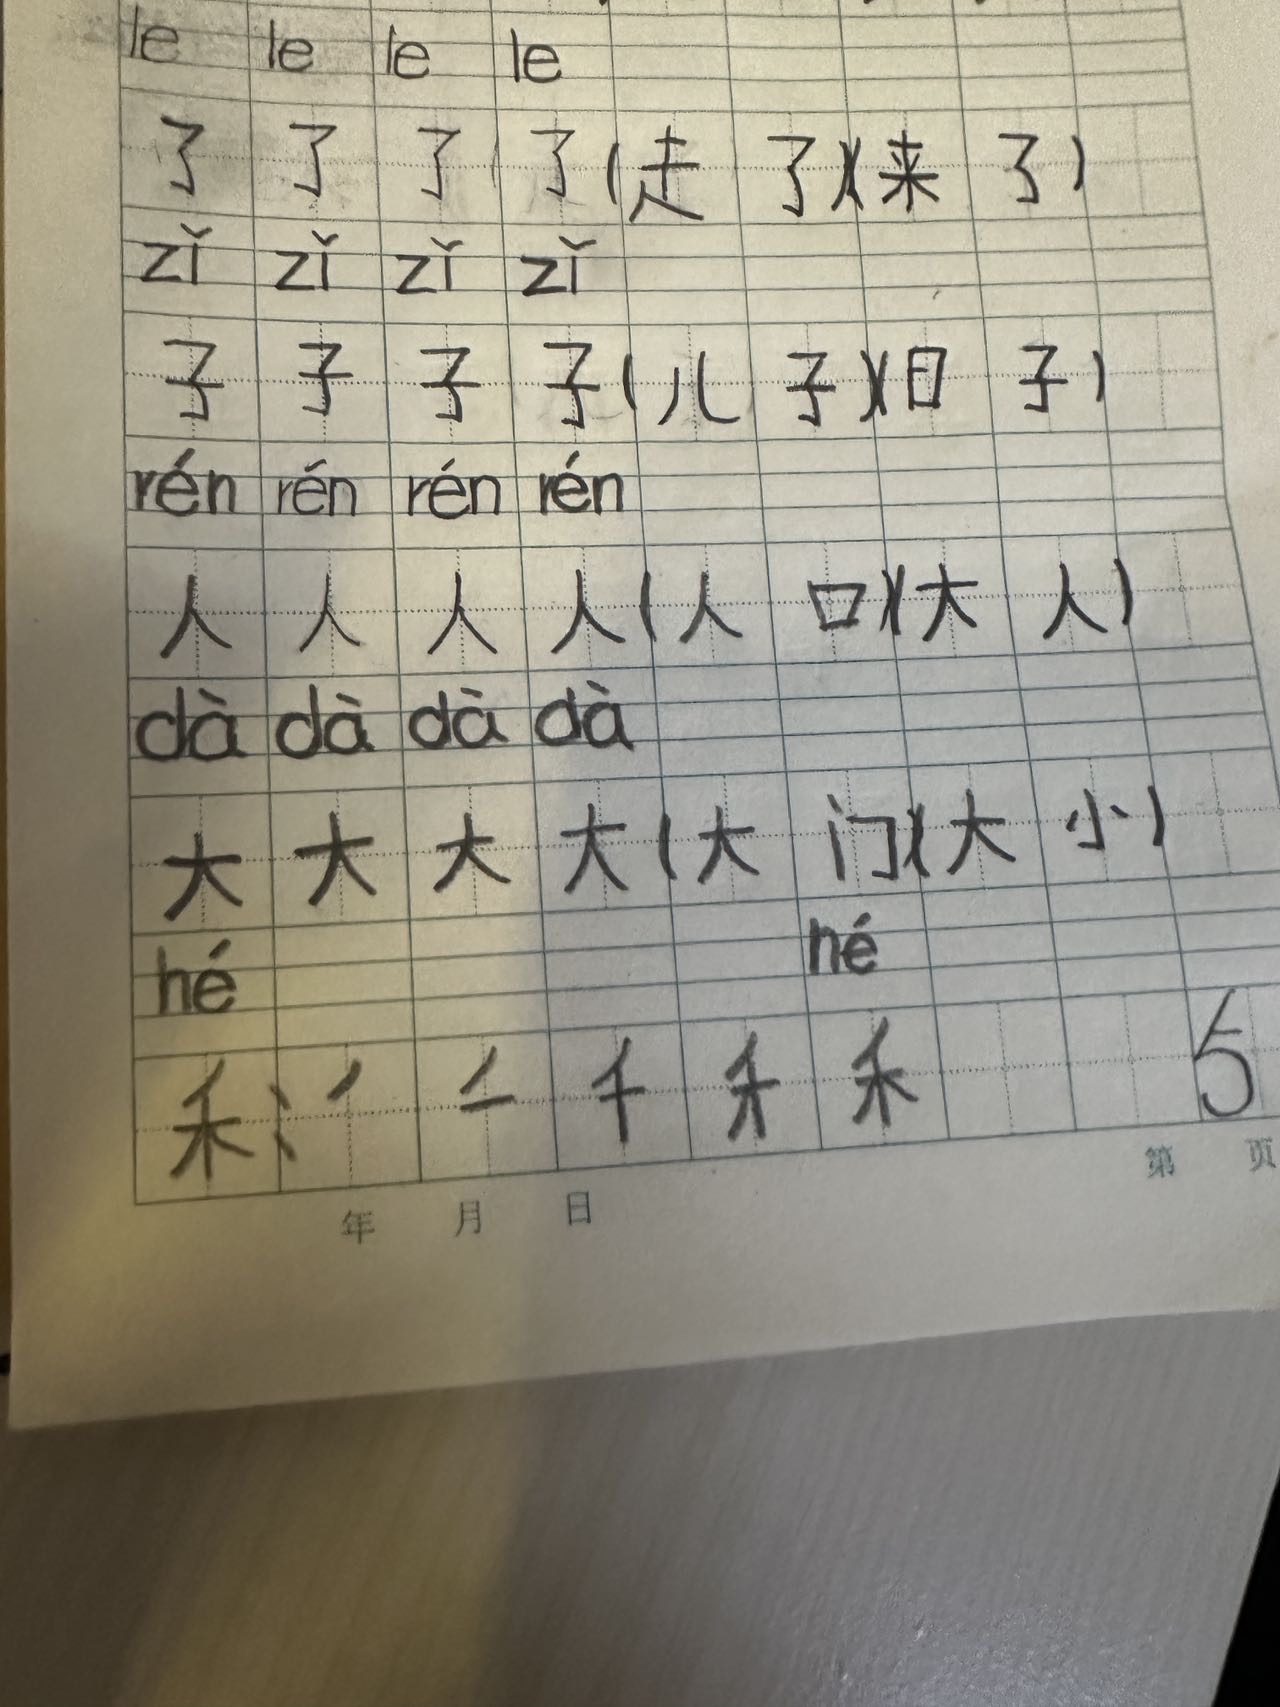 le le le le
了 了 了 了(走 了)(来 了)
zǐ zǐ zǐ zǐ
子 子 子 子(儿 子)(日 子)
rén rén rén rén
人 人 人 人(人 口)(大 人)
dà dà dà dà
大 大 大 大(大 门)(大 小)
hé hé
禾: 丿 二 千 禾 禾 5
年 月 日 第 页